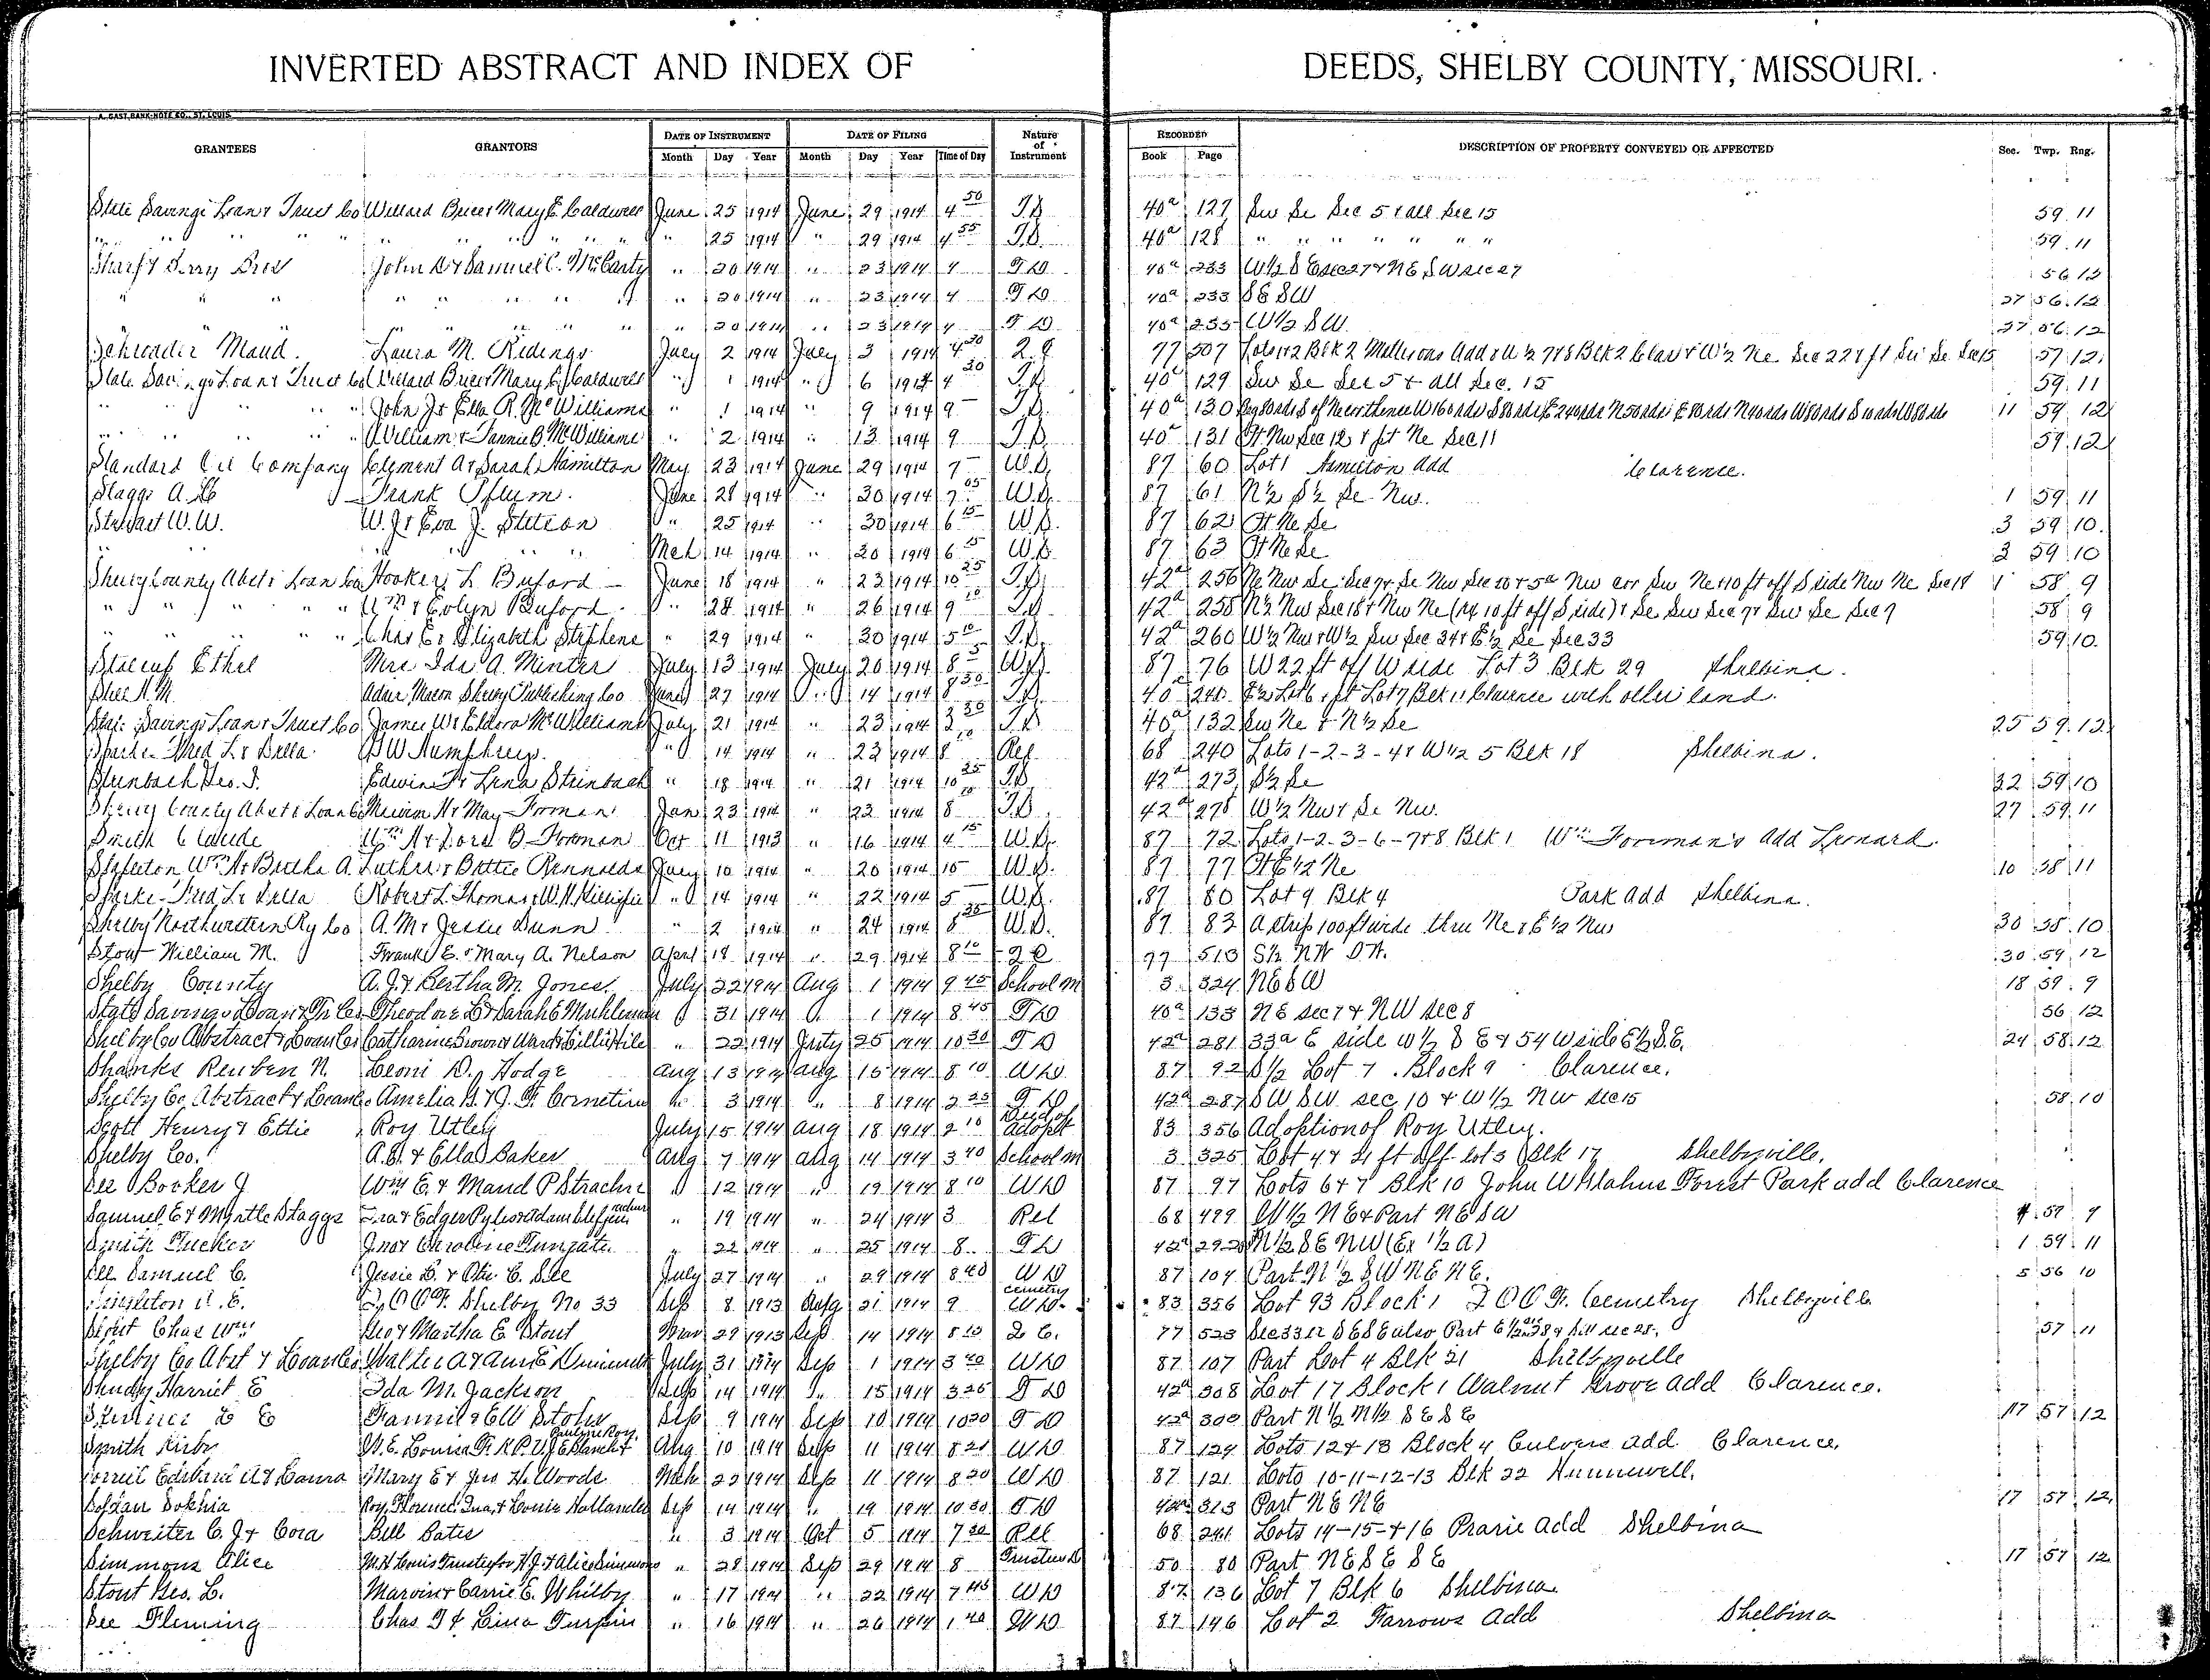 INVERTED ABSTRACT AND INDEX OF DEEDS, SHELBY COUNTY, MISSOURI.
A. GAST BANK-NOTE CO., ST. LOUIS
GRANTEES GRANTORS DATE OF INSTRUMENT DATE OF FILING Nature of Instrument RECORDED DESCRIPTION OF PROPERTY CONVEYED OR AFFECTED Sec. Twp. Rng.
Month Day Year Month Day Year Time of Day Book Page
State Savings Loan & Trust Co Willard Brice & Mary E Caldwell June 25 1914 June 29 1914 4 50 T.D. 40a 127 Sw Se Sec 5 & all Sec 15 59 11
" " " " " " " " " " " 25 1914 " 29 1914 4 55 T.D. 40a 128 " " " " " " " 59 11
John D & Samuel C. McCarty " 20 1914 " 23 1914 4 T D 40a 233 W½ S E sec 27 & N E S W sec 27 56 12
" " " " " " " " 20 1914 " 23 1914 4 T D 40a 233 S E S W 27 56 12
" " " " " 20 1914 " 23 1914 4 T D 40a 235 W½ S W. 27 56 12
Schrader Maud. Laura M. Ridings July 2 1914 July 3 1914 4 30 2.C. 77 507 Lots 1 & 2 Blk 2 57 12
State Savings Loan & Trust Co Willard Brice & Mary E. Caldwell " 1 1914 " 6 1914 4 20 T.D. 40a 129 Sw Se Sec 5 & all Sec. 15 59 11
" " " " John J & Ella R. McWilliams " 1 1914 " 9 1914 9 T.D. 40a 130 11 59 12
" " " " William & Fannie B. McWilliams " 2 1914 " 13 1914 9 T.D. 40a 131 Pt Nw Sec 12 & pt Ne Sec 11 59 12
Standard Oil Company Clement A & Sarah Hamilton May 23 1914 June 29 1914 7 W.D. 87 60 Lot 1 Hamilton Add Clarence.
Staggs A. Frank Pflum. June 28 1914 " 30 1914 7 05 W.D. 87 61 N½ S½ Se Nw. 1 59 11
Stewart W.W. W.J & Eva J. Stetson " 25 1914 " 30 1914 6 15 W.D. 87 62 Pt Ne Se 3 59 10.
" " " " " Mch 14 1914 " 20 1914 6 15 W.D. 87 63 Pt Ne Se 3 59 10
Shelby County Abst & Loan Co Hooker L Buford June 18 1914 " 23 1914 10 25 T.D. 42a 256 1 58 9
" " " " " Wm & Evlyn Buford. " 24 1914 " 26 1914 9 T.D. 42a 258 58 9
" " " " " Chas E & Elizabeth Stephens " 29 1914 " 30 1914 5 10 T.D. 42a 260 W½ Nw & W½ Sw Sec 34 & E½ Se Sec 33 59 10.
Stalcup Ethel Mrs Ida A. Minter July 13 1914 July 20 1914 8 5 W.D. 87 76 W 22 ft off W side Lot 3 Blk 29 Shelbina.
Macon Shelby Publishing Co June 27 1914 " 14 1914 8 30 T.D. 40 240 E½ Lot 6 & pt Lot 7 Blk 11 Clarence with other land.
State Savings Loan & Trust Co James W & Eldora McWilliams July 21 1914 " 23 1914 3 30 T.D. 40a 132 Sw Ne & N½ Se 25 59 12
Sparks Fred L & Della W Humphrey. " 14 1914 " 23 1914 8 Rel 68 240 Lots 1-2-3-4 & W½ 5 Blk 18 Shelbina.
Steinbach Geo. J. Edwin F & Lena Steinbach " 18 1914 " 21 1914 10 25 T.D. 42a 273 S½ Se 32 59 10
Shelby County Abst & Loan Co Marion H & May Forman Jan 23 1914 " 22 1914 8 T.D. 42a 278 W½ Nw & Se Nw. 27 59 11
Smith Claude Wm H & Dora B Forman Oct 11 1913 " 16 1914 4 15 W.D. 87 72 Lots 1-2-3-6-7 & 8 Blk 1 Wm Forman's Add Leonard.
Stapleton Wm H & Bertha A. Luther & Bettie Rennolds July 10 1914 " 20 1914 10 W.D. 87 77 Pt E½ Ne 10 58 11
Sparks Fred L & Della Robert L. Thomas & W.H. " 14 1914 " 22 1914 5 W.D. 87 80 Lot 9 Blk 4 Park Add Shelbina.
Shelby Northwestern Ry Co A. M & Jessie Dunn " 2 1914 " 24 1914 8 35 W.D. 87 83 A strip 100 ft wide thru Ne & E½ Nw 30 58 10
Stout William M. Frank E. & Mary A. Nelson April 18 1914 " 29 1914 8 10 2 C 77 513 S½ NW 30 59 12
Shelby County A. J. & Bertha M. Jones July 22 1914 Aug 1 1914 9 45 School m 3 324 N E S W 18 59 9
State Savings Loan & Tr Co Theodore L & Sarah E " 31 1914 " 1 1914 8 45 T D 40a 133 N E sec 7 & NW sec 8 56 12
Shelby Co Abstract & Loan Co Catharine Brown & Ward & Lillie Hile " 22 1914 July 25 1914 10 30 T D 42a 281 33a E side W½ S E & 54 W side E½ S.E. 24 58 12
Shanks Reuben N. Leoni D. Hodge Aug 13 1914 Aug 15 1914 8 10 W D. 87 92 S½ Lot 7 Block 9 Clarence.
Shelby Co Abstract & Loan Co Amelia B. & J. F. Cornetius " 3 1914 " 8 1914 2 25 T D 42a 287 S W S W sec 10 & W½ NW sec 15 58 10
Scott Henry & Ettie Roy Utley July 15 1914 Aug 18 1914 2 10 Deed of Adopt 83 356 Adoption of Roy Utley.
Shelby Co. A. B. & Ella Baker Aug 7 1914 Aug 14 1914 3 40 School m 3 325 Lot 4 & 21 ft off lot 3 Blk 17 Shelbyville.
See Booker J Wm E. & Maud P Strachn " 12 1914 " 19 1914 8 10 W D 87 97 Lots 6 & 7 Blk 10 John W Forest Park add Clarence
Samuel E & Myrtle Staggs " 19 1914 " 24 1914 3 Rel 68 499 W½ N E & Part N E S W 4 57 9
Smith Tucker Jno & Caroline Tungate " 22 1914 " 25 1914 8 T D 42a 292 N½ S E NW (Ex 1½ a) 1 59 11
See Samuel C. Jessie B. & Otis C. See July 27 1914 " 29 1914 8 40 W D 87 104 Part N½ S W N E N E. 5 56 10
I O O F. Shelby No 33 Sep 8 1913 Aug 21 1914 9 Cemetry W D. 83 356 Lot 93 Block 1 I O O F. Cemetry Shelbyville
Stout Chas Wm Geo & Martha E. Stout Nov 29 1913 Sep 14 1914 8 10 2 C. 77 523 57 11
Shelby Co Abst & Loan Co Walter A & July 31 1914 Sep 1 1914 3 40 W D 87 107 Part Lot 4 Blk 21 Shelbyville
Harriet E Ida M. Jackson Sep 14 1914 " 15 1914 3 25 T D 42a 308 Lot 17 Block 1 Walnut Grove add Clarence.
Fannie & E W Sep 9 1914 Sep 10 1914 10 20 T D 42a 300 Part N½ N½ S E S E 17 57 12
Smith Kirby Aug 10 1914 Sep 11 1914 8 20 W D 87 124 Lots 12 & 13 Block 4 Culvers add Clarence.
Edward A & Laura Mary E & Jno H. Woods Mch 22 1914 Sep 11 1914 8 20 W D 87 121 Lots 10-11-12-13 Blk 22 Hunnewell.
Sophia Roy, Florence, Ina, & Louis Sep 14 1914 " 19 1914 10 30 T D 42a 313 Part N E N E 17 57 12
Schweiter C. J & Cora Bell Bates " 3 1914 Oct 5 1914 7 30 Rel 68 241 Lots 14-15-&16 Prarie add Shelbina
Simmons Alice M. H Lewis Trustee for H. J. & Alice Simmons " 28 1914 Sep 29 1914 8 Trustees D 50 80 Part N E S E S E 17 57 12
Stout Geo. L. Marvin & Carrie E. Whitby " 17 1914 " 22 1914 7 45 W D 87 136 Lot 7 Blk 6 Shelbina
See Fleming Chas T & Lina Turpin " 16 1914 " 26 1914 1 40 W D 87 146 Lot 2 Farrows Add Shelbina